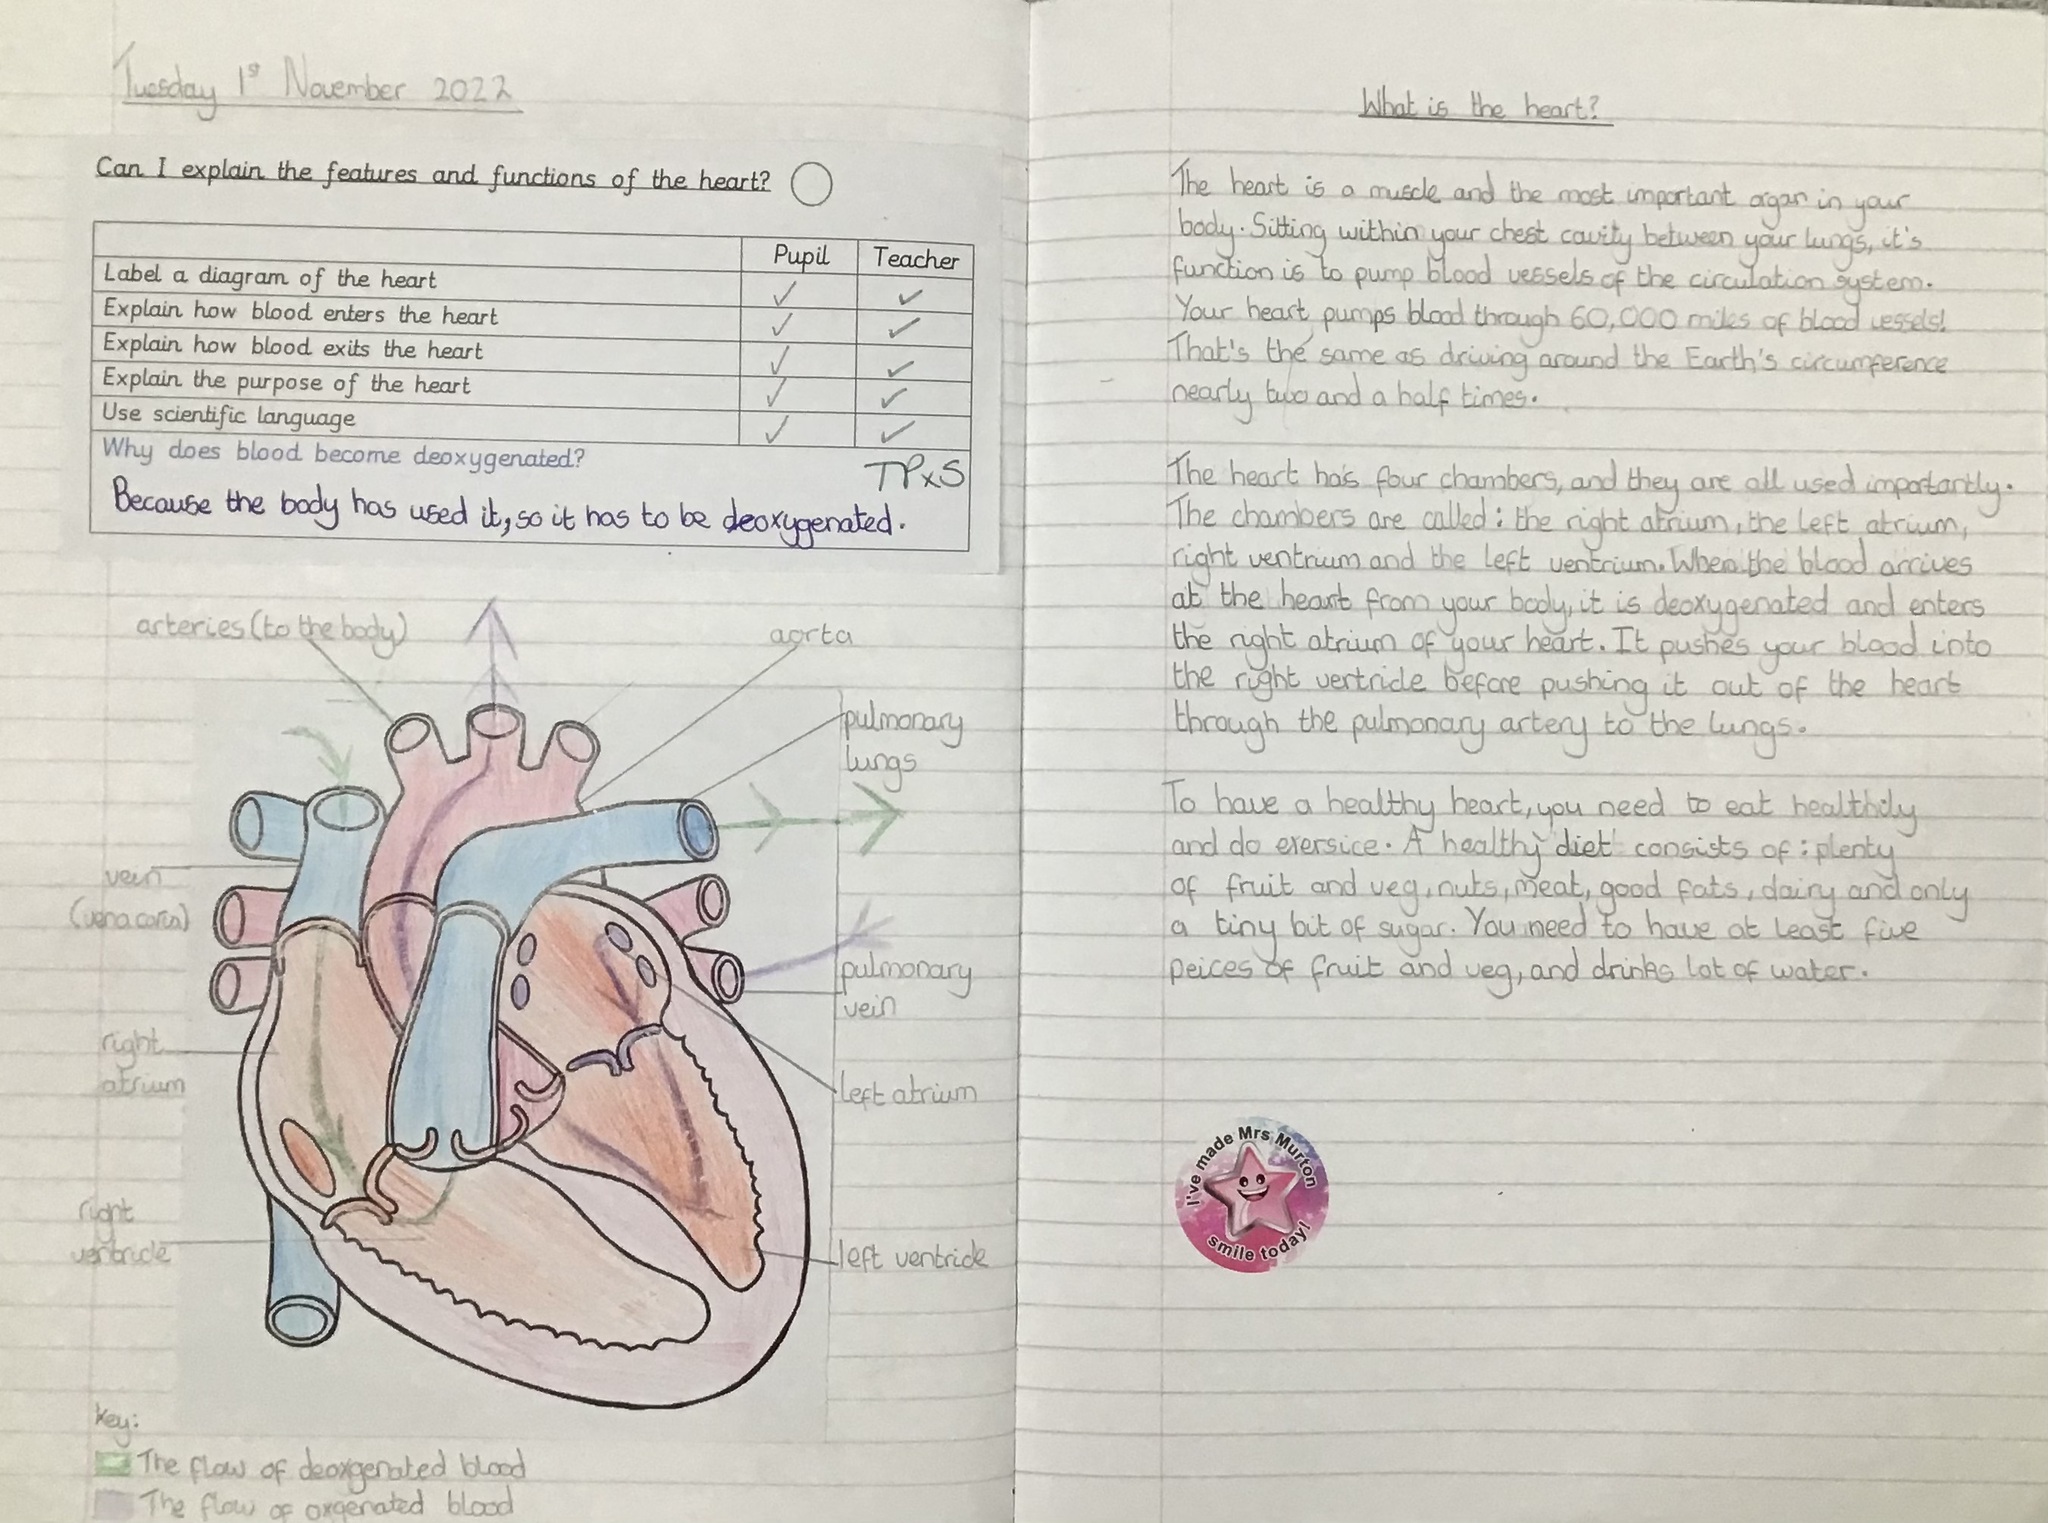 Tuesday 1st November 2022
Can I explain the features and functions of the heart?
Pupil Teacher
Label a diagram of the heart ✓ ✓
Explain how blood enters the heart ✓ ✓
Explain how blood exits the heart ✓ ✓
Explain the purpose of the heart ✓ ✓
Use scientific language ✓ ✓
Why does blood become deoxygenated?
TPxS
Because the body has used it, so it has to be deoxygenated.
arteries (to the body)
aorta
pulmonary
lungs
vein
(vena cava)
pulmonary
vein
right
atrium
left atrium
right
ventricle
left ventricle
Key:
The flow of deoxgenated blood
The flow of oxgenated blood
What is the heart?
The heart is a muscle and the most important organ in your
body. Sitting within your chest cavity between your lungs, it's
function is to pump blood vessels of the circulation system.
Your heart pumps blood through 60,000 miles of blood vessels!
That's the same as driving around the Earth's circumference
nearly two and a half times.
The heart has four chambers, and they are all used importantly.
The chambers are called: the right atrium, the left atrium,
right ventrium and the left ventrium. When the blood arrives
at the heart from your body, it is deoxygenated and enters
the right atrium of your heart. It pushes your blood into
the right ventricle before pushing it out of the heart
through the pulmonary artery to the lungs.
To have a healthy heart, you need to eat healthily
and do exersice. A healthy diet consists of: plenty
of fruit and veg, nuts, meat, good fats, dairy and only
a tiny bit of sugar. You need to have at least five
peices of fruit and veg, and drinks lot of water.
I've made Mrs Murton
smile today!